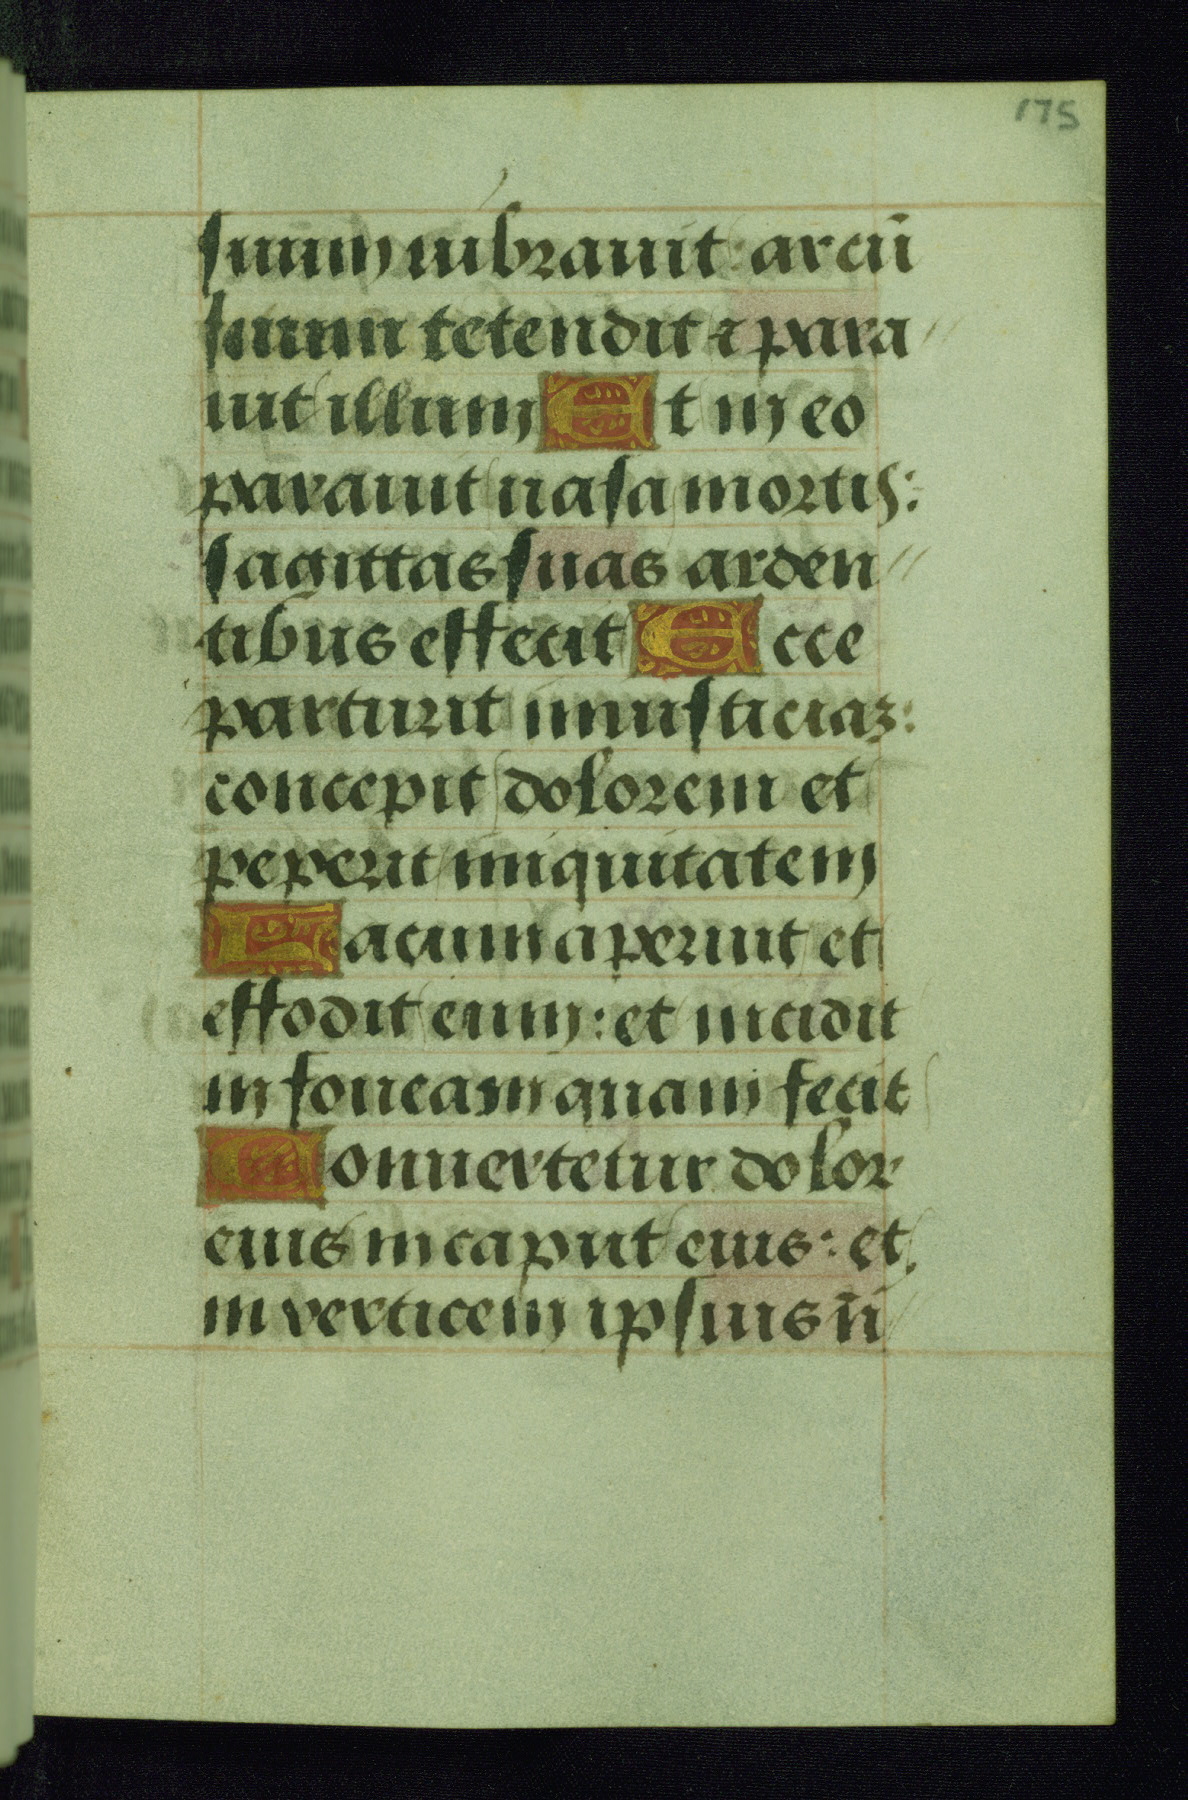 175
suum uibrauit: arcū
suum tetendit ⁊ para
uit illum Et in eo
parauit uasa mortis:
sagittas suas arden
tibus effecit Ecce
parturit iniusticiaz:
concepit dolorem et
peperit iniquitatem
Lacum aperuit et
effodit eum: et incidit
in foueam quam fecit
Conuertetur dolor
eius in caput eius: et
in verticem ipsuis īi